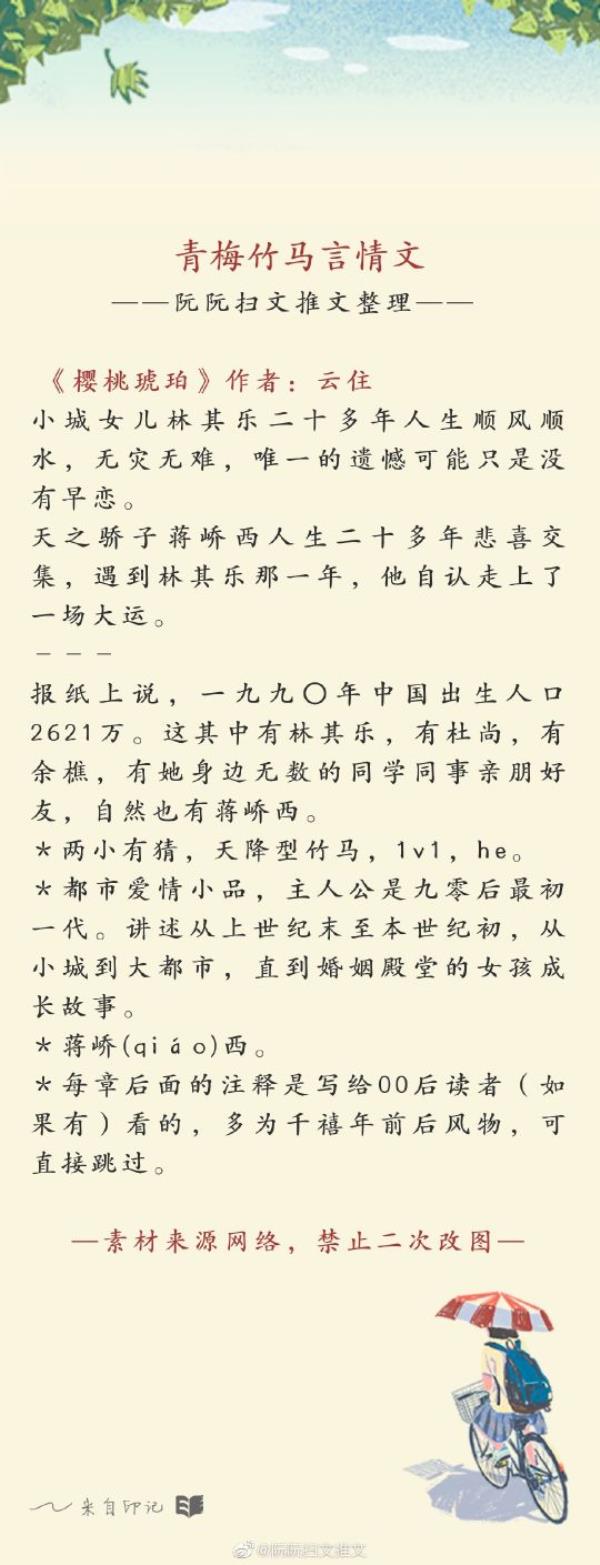 青梅竹马言情文
——阮阮扫文推文整理——
《樱桃琥珀》作者：云住
小城女儿林其乐二十多年人生顺风顺
水，无灾无难，唯一的遗憾可能只是没
有早恋。
天之骄子蒋峤西人生二十多年悲喜交
集，遇到林其乐那一年，他自认走上了
一场大运。
---
报纸上说，一九九〇年中国出生人口
2621万。这其中有林其乐，有杜尚，有
余樵，有她身边无数的同学同事亲朋好
友，自然也有蒋峤西。
*两小有猜，天降型竹马，1v1，he。
*都市爱情小品，主人公是九零后最初
一代。讲述从上世纪末至本世纪初，从
小城到大都市，直到婚姻殿堂的女孩成
长故事。
*蒋峤(qiáo)西。
*每章后面的注释是写给00后读者（如
果有）看的，多为千禧年前后风物，可
直接跳过。
—素材来源网络，禁止二次改图—
来自印记
@阮阮扫文推文